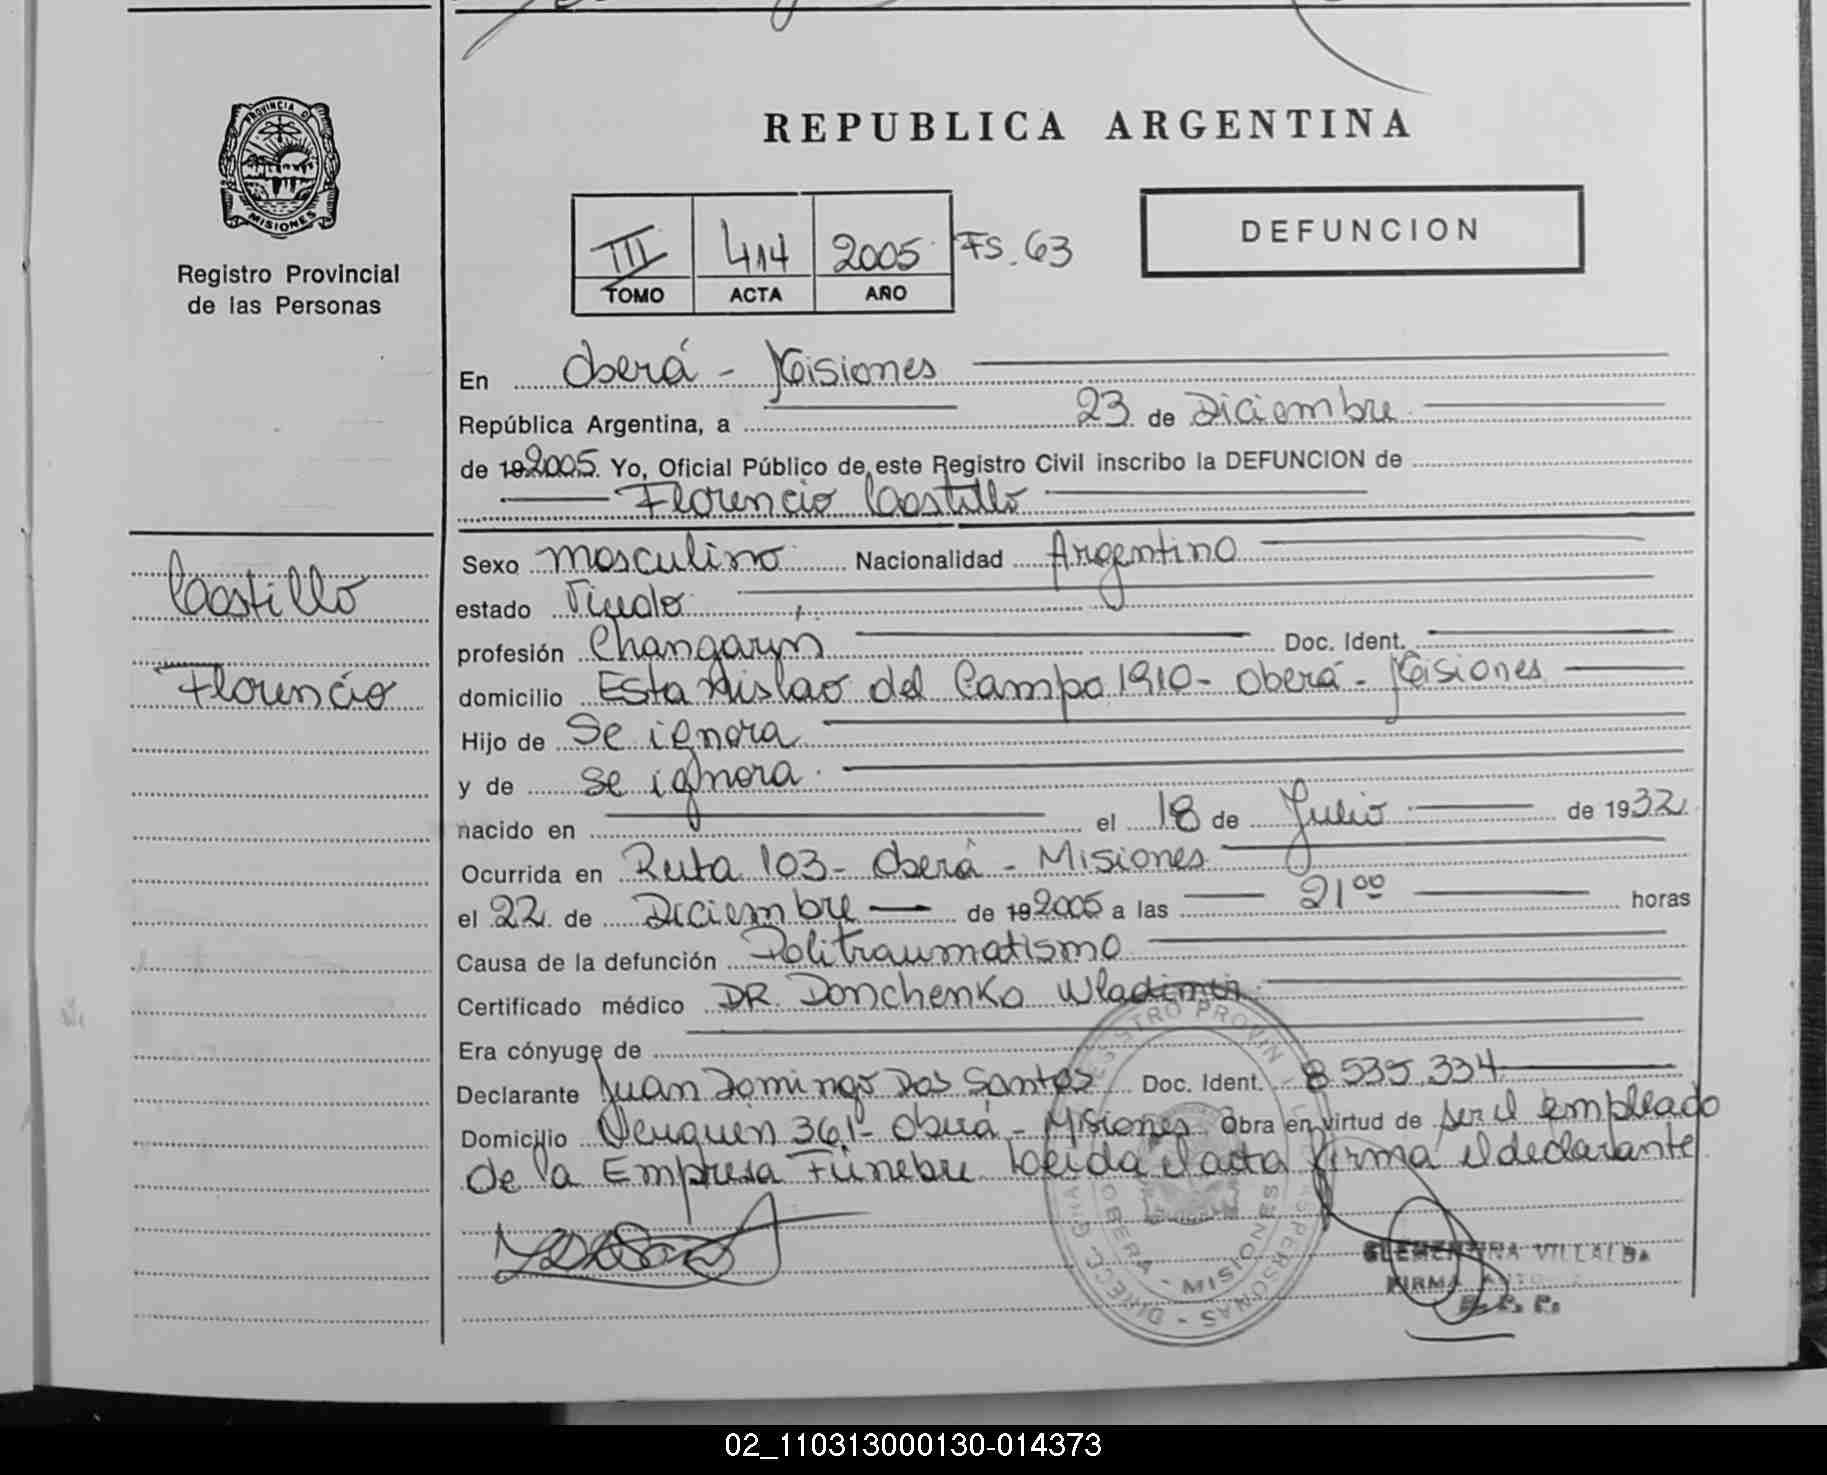 PROVINCIA D
MISIONES
Registro Provincial
de las Personas
REPUBLICA ARGENTINA
III 414 2005 FS. 63
TOMO ACTA AÑO
DEFUNCION
En Oberá - Misiones
República Argentina, a 23 de Diciembre
de 192005. Yo, Oficial Público de este Registro Civil inscribo la DEFUNCION de
Florencio Castillo
Castillo
Florencio
Sexo masculino Nacionalidad Argentino
estado Viudo
profesión Changarin Doc. Ident.
domicilio Estanislao del Campo 1910 - Oberá - Misiones
Hijo de Se ignora
y de se ignora.
nacido en el 18 de Julio de 1932
Ocurrida en Ruta 103 - Oberá - Misiones
el 22 de Diciembre de 192005 a las 21 00 horas
Causa de la defunción Politraumatismo
Certificado médico DR. Donchenko Wladimir
Era cónyuge de
Declarante Juan Domingo Dos Santos Doc. Ident. 8 535.334
Domicilio Neuquén 361 - Oberá - Misiones Obra en virtud de ser el empleado
de la Empresa Fúnebre leida el acta firma el declarante
OBERA - MISIONES
CLEMENTINA VILLALBA
FIRMA
02_110313000130-014373